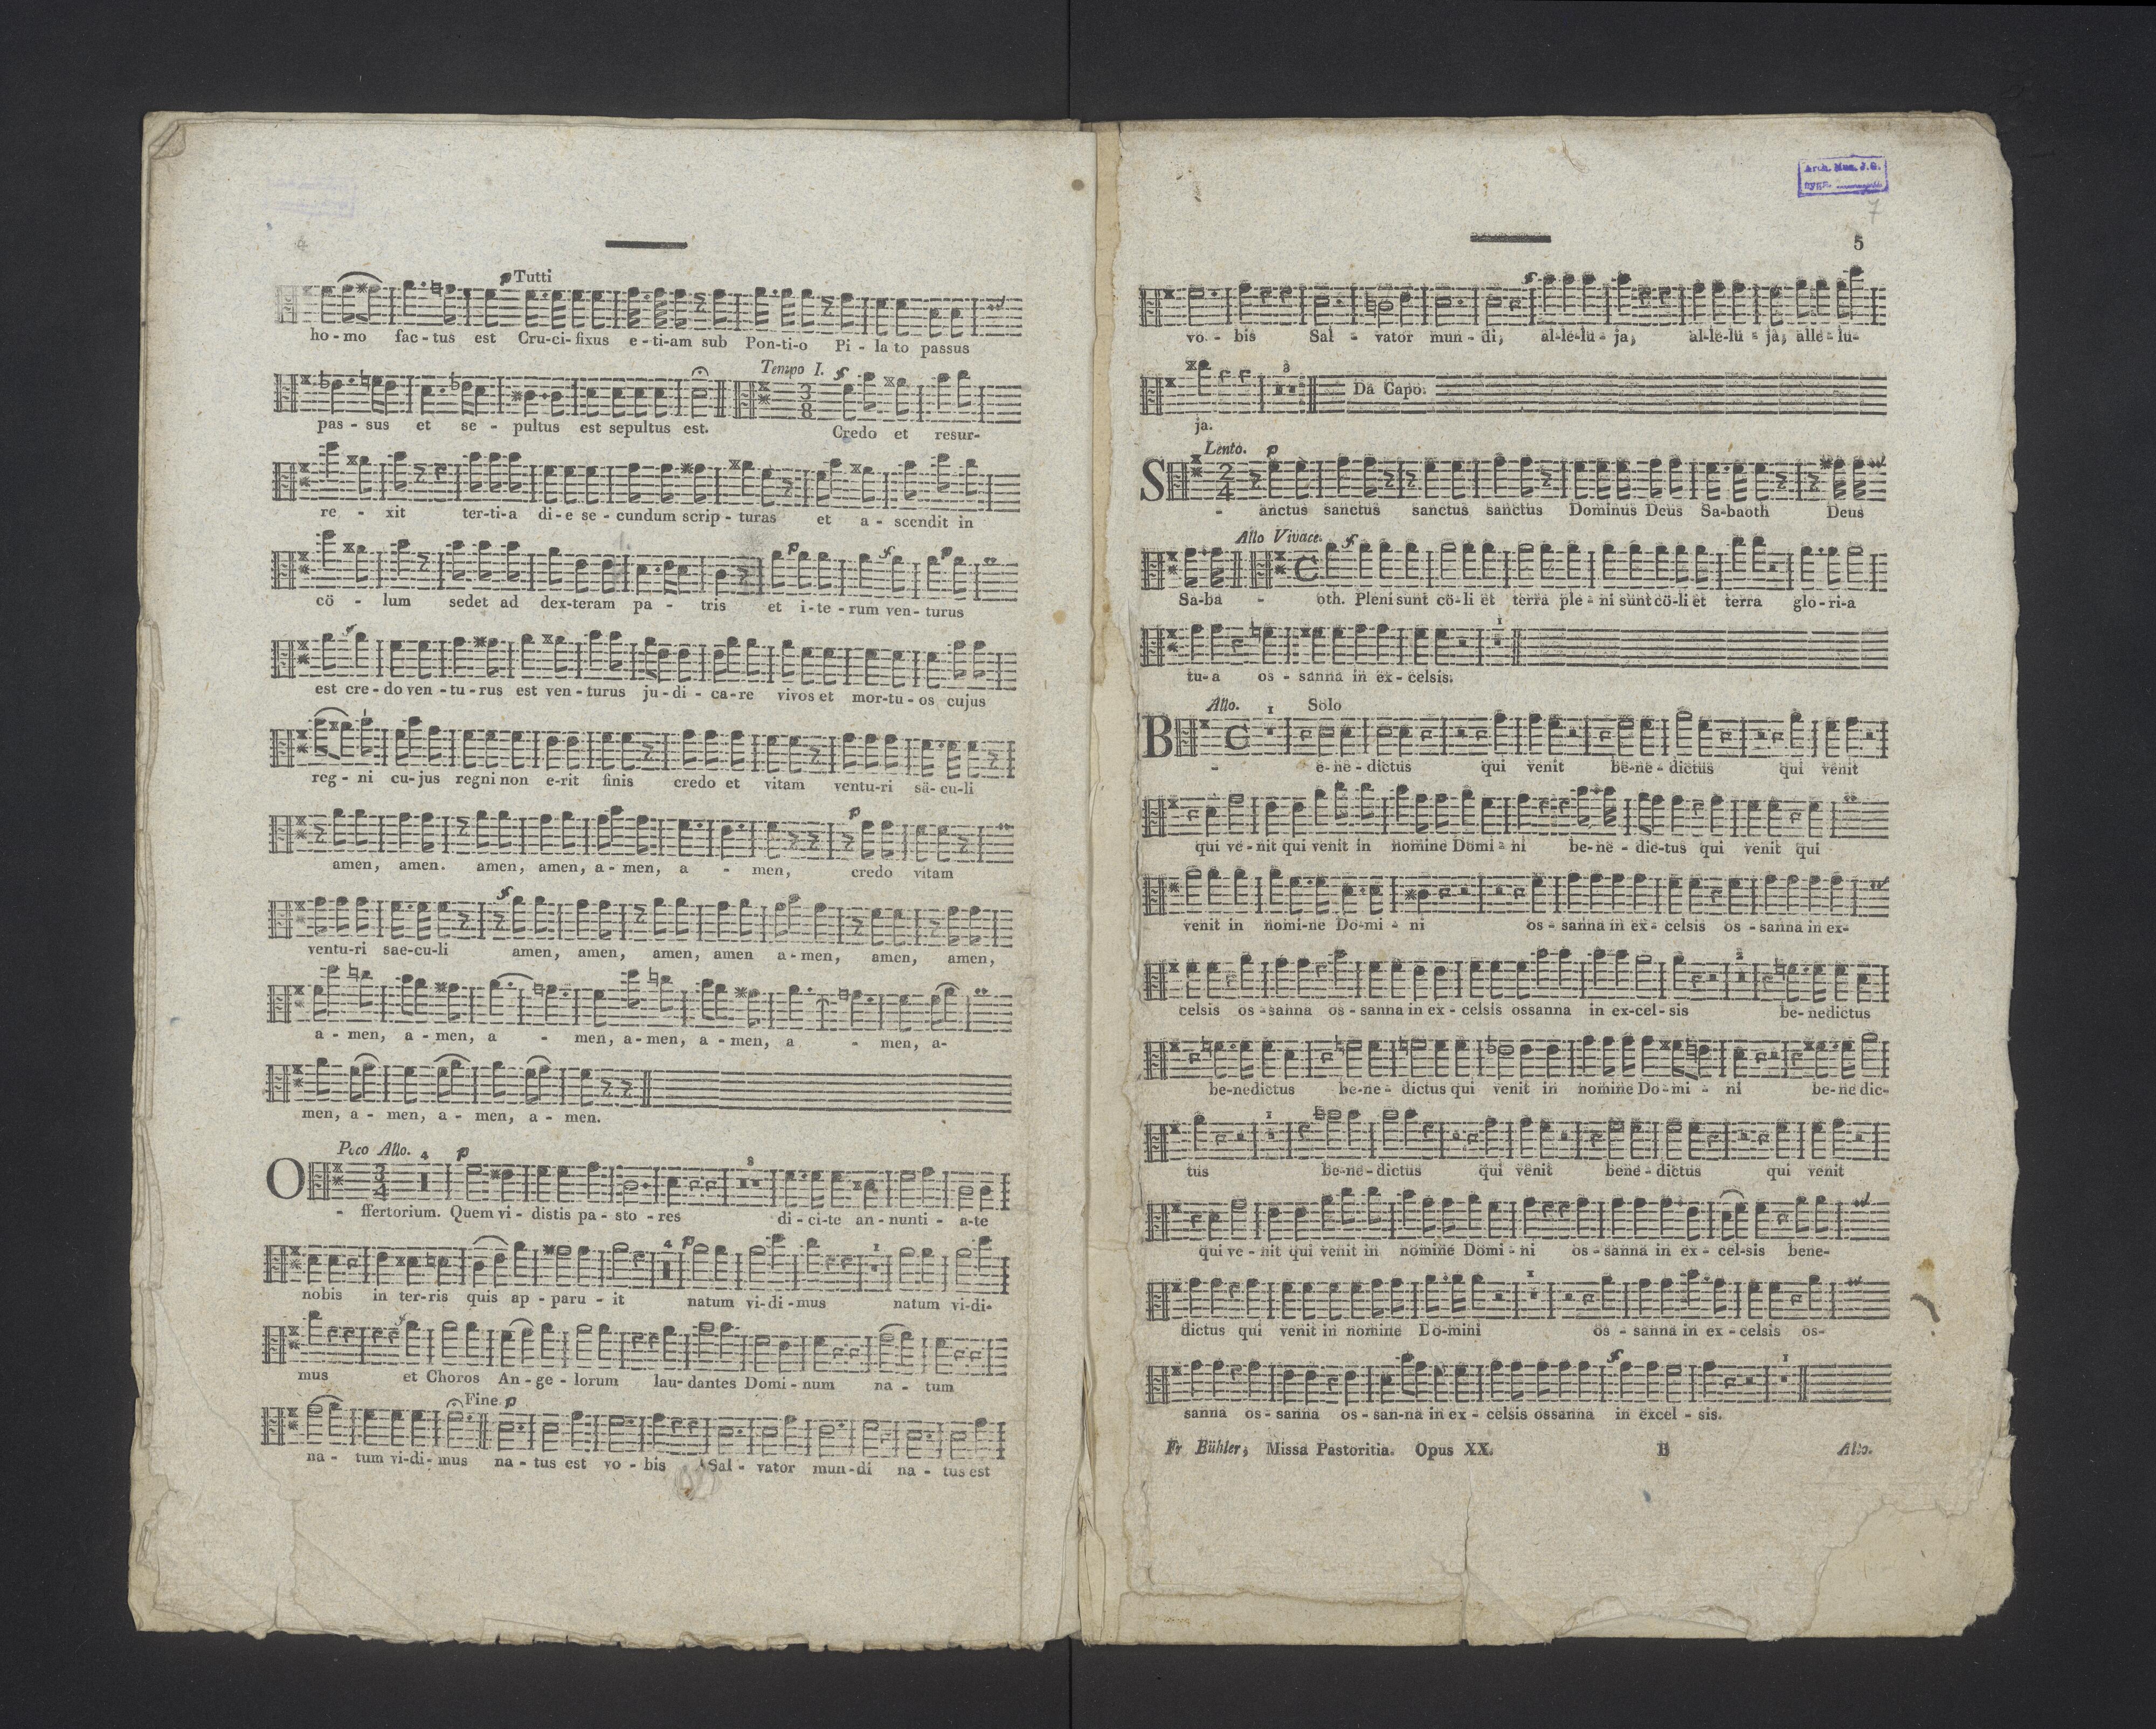 4
p Tutti
ho - mo fac - tus est Cru - ci - fixus e - ti - am sub Pon - ti - o Pi - la to passus
Tempo I. f
3
8
pas - sus et se - pultus est sepultus est. Credo et resur-
re - xit ter - ti - a di - e se - cundum scrip - turas et a - scendit in
p f p
cö - lum sedet ad dex - teram pa - tris et i - te - rum ven - turus
f
est cre - do ven - tu - rus est ven - turus ju - di - ca - re vivos et mor - tu - os cujus
reg - ni cu - jus regni non e - rit finis credo et vitam ventu - ri sä - cu - li
p
amen, amen. amen, amen, a - men, a - men, credo vitam
f
ventu - ri sae - cu - li amen, amen, amen, amen a - men, amen, amen,
a - men, a - men, a - men, a - men, a - men, a - men, a-
men, a - men, a - men, a - men.
Poco Allo. 4 p 8
3
4
O - ffertorium. Quem vi - distis pa - sto - res di - ci - te an - nunti - a - te
4 p 1
nobis in ter - ris quis ap - paru - it natum vi - di - mus natum vi - di-
f
mus et Choros An - ge - lorum lau - dantes Domi - num na - tum
Fine p
na - tum vi - di - mus na - tus est vo - bis Sal - vator mun - di na - tus est
Arch. Mus. J. G.
7
5
f
vo - bis Sal - vator mun - di, al - le - lu - ja, al - le - lu - ja, alle - lu-
3
Da Capo.
ja.
Lento. p
2
4
S - anctus sanctus sanctus sanctus Dominus Deus Sa - baoth Deus
Allo Vivace. f
C
Sa - ba - oth. Pleni sunt cö - li et terra ple - ni sunt cö - li et terra glo - ri - a
1
tu - a os - sanna in ex - celsis.
Allo. 1 Solo
C
B - e - ne - dictus qui venit be - ne - dictus qui venit
qui ve - nit qui venit in nomine Domi - ni be - ne - dic - tus qui venit qui
venit in nomi - ne Do - mi - ni os - sanna in ex - celsis os - sanna in ex-
2
celsis os - sanna os - sanna in ex - celsis ossanna in ex - cel - sis be - nedictus
be - nedictus be - ne - dictus qui venit in nomine Do - mi - ni be - ne dic-
1
tus be - ne - dictus qui venit bene - dictus qui venit
qui ve - nit qui venit in nomine Domi - ni os - sanna in ex - cel - sis bene-
1
dictus qui venit in nomine Do - mini os - sanna in ex - celsis os-
f 1
sanna os - sanna os - san - na in ex - celsis ossanna in excel - sis.
Fr Bühler, Missa Pastoritia. Opus XX. B Alto.